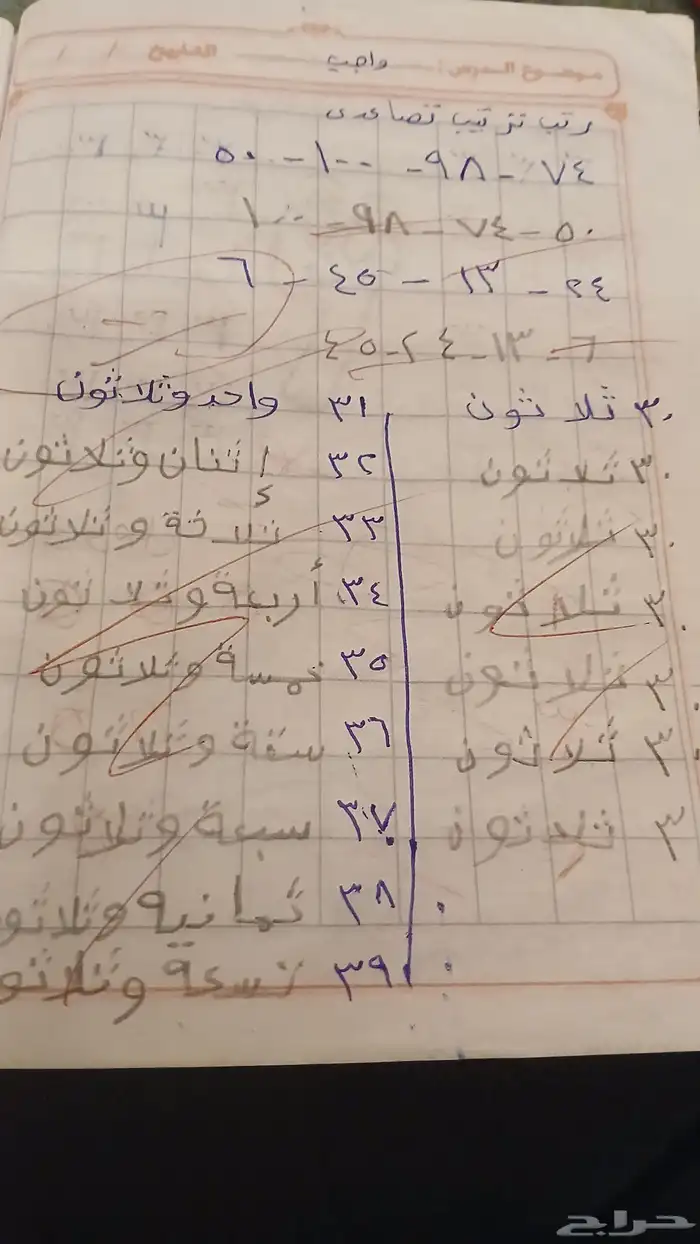 موضوع الدرس: واجب التاريخ / /
رتب ترتيب تصاعدى
٧٤ - ٩٨ - ١٠٠ - ٥٠
٥٠ - ٧٤ - ٩٨ - ١٠٠
٢٤ - ١٣ - ٤٥ - ٦
٦ - ١٣ - ٢٤ - ٤٥
٣٠ ثلاثون ٣١ واحد وثلاثون
٣٠ ثلاثون ٣٢ اثنان وثلاثون
٣٠ ثلاثون ٣٣ ثلاثة وثلاثون
٣٠ ثلاثون ٣٤ أربعة وثلاثون
٣٠ ثلاثون ٣٥ خمسة وثلاثون
٣٠ ثلاثون ٣٦ ستة وثلاثون
٣ ثلاثون ٣٧ سبعة وثلاثون
٣٨ ثمانية وثلاثو
٣٩ تسعة وثلاثو
حراج